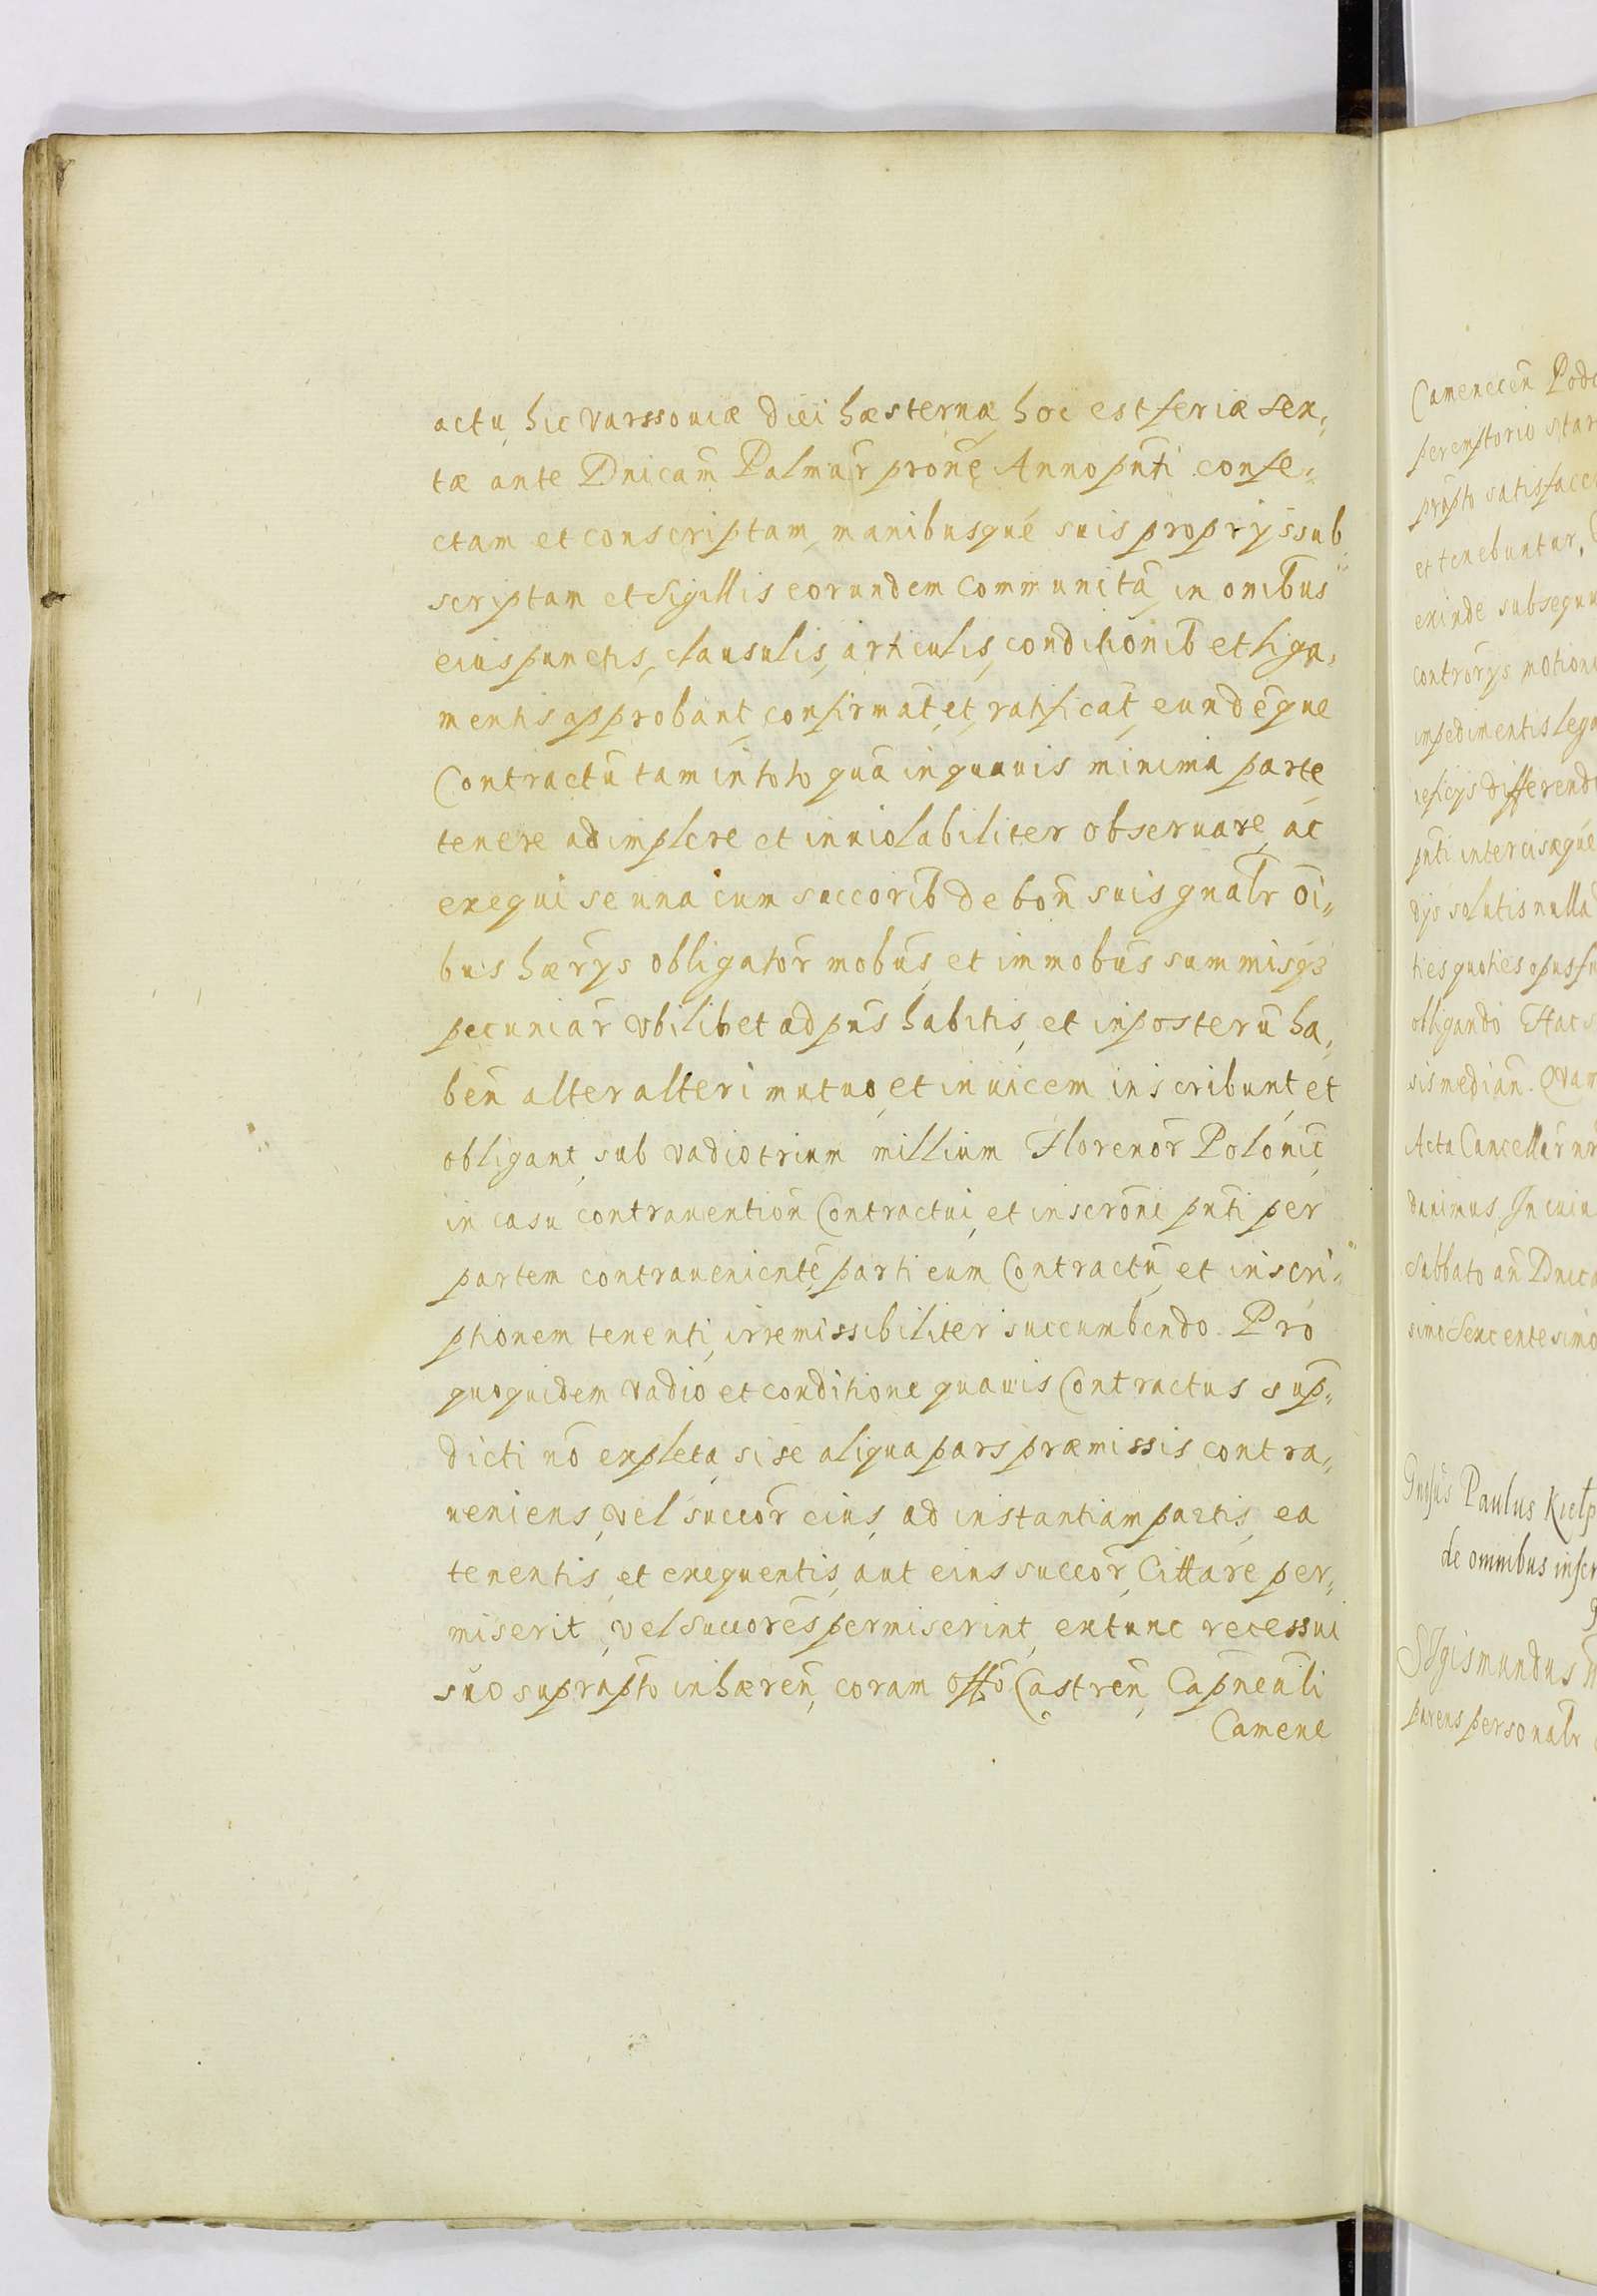 actu, hic varssouiæ diei hæsternæ, hoc est feriæ sex,,
tæ ante Dnicam̄ Palmar̄ prox̄e Anno pn̄ti confe,,
ctam et conscriptam, manibusque suis proprijs sub
scriptam et Sigillis eorundem communitā, in om̄ibus
eius punctis, clausulis, articulis, conditionib̄ et liga,,
mentis approbant, confirmāt, et ratificāt, eundēque
Contractū tam in toto quā in quauis minima parte,
tenere adimplere et inuiolabiliter obseruare, ac
exequi se una cum succorib̄ de bon̄ suis gnalr̄ oī,,
bus hær̄ys obligator̄ mobūs, et immobūs summisq3
pecuniar̄ vbilibet ad pn̄s habitis, et in posterū ha,,
ben̄ alter alteri mutuo, et inuicem inscribunt, et
obligant, sub vadio trium millium Florenor̄ Polonic̄,
in casu contrauention̄ Contractui, et inscrōni pn̄ti per
partem contrauenientē, parti eum Contractū, et inscri,,
ptionem tenenti, irremissibiliter succumbendo. Pro
quoquidem vadio et conditione quauis Contractus sup̄,,
dicti nō expleta, si se aliqua pars præmissis, contra,,
ueniens, vel succor̄ eius, ad instantiam partis, ea
tenentis, et exequentis, aut eius succor̄, Cittare per,,
miserit, vel succorēs permiserint, extunc recessui
suo suprap̄to inhæren̄, coram offō Castren̄, Cap̄neali
Camene
Camenecen̄
peremptorio
prap̄to
et tenebuntur,
exinde
impedimentis
differend
pn̄ti intercisæque
solutis nulla
ties quoties opus
obligando Hac
Acta Cancellar̄
Sabbato an̄ Dnica
Paulus
de omnibus
Sigismundus
parens personalr̄